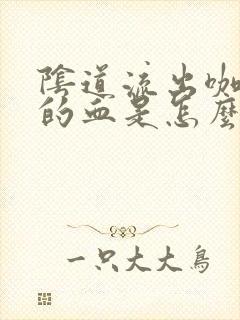 陰道流出咖
的血是怎麼
一只大大鳥